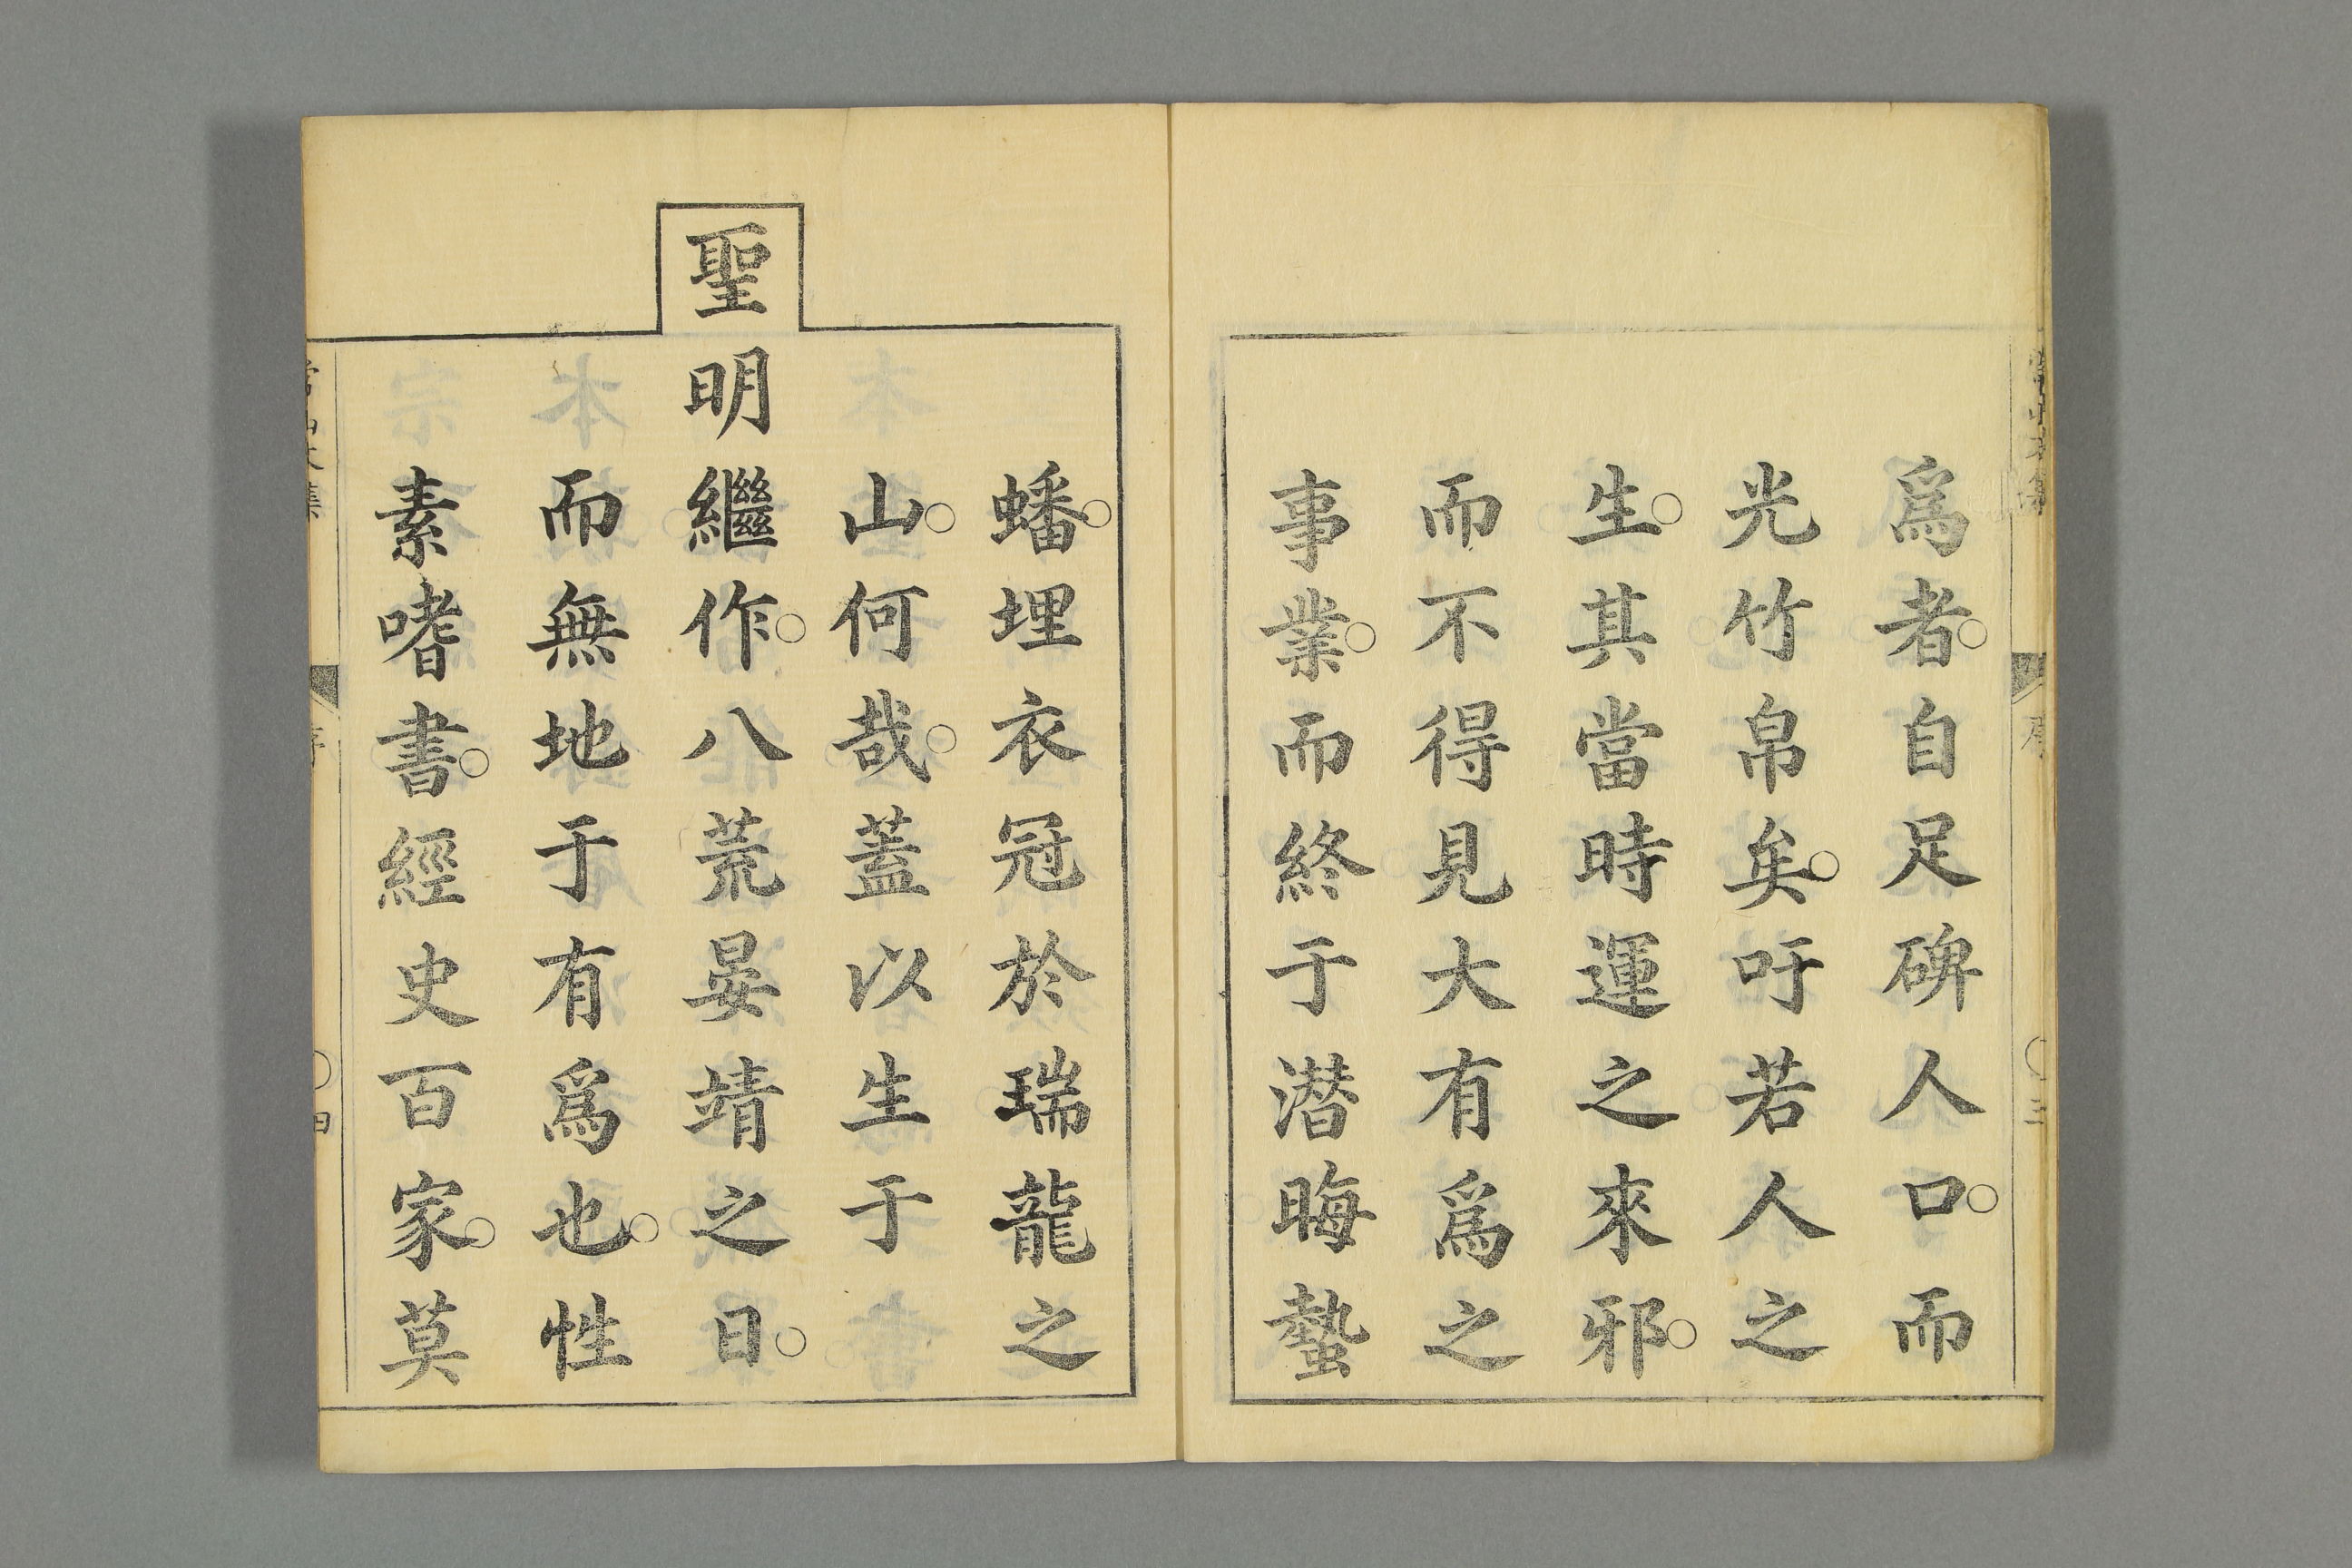 爲者○自足碑人口○而
光竹帛矣○吁若人之
生○其當時運之來邪○
而不得見大有爲之
事業○而終于潛晦蟄
序
三
蟠○埋衣冠於瑞龍之
山○何哉○蓋以生于
聖明繼作○八荒晏靖之日○
而無地于有爲也○性
素嗜書○經史百家○莫
四